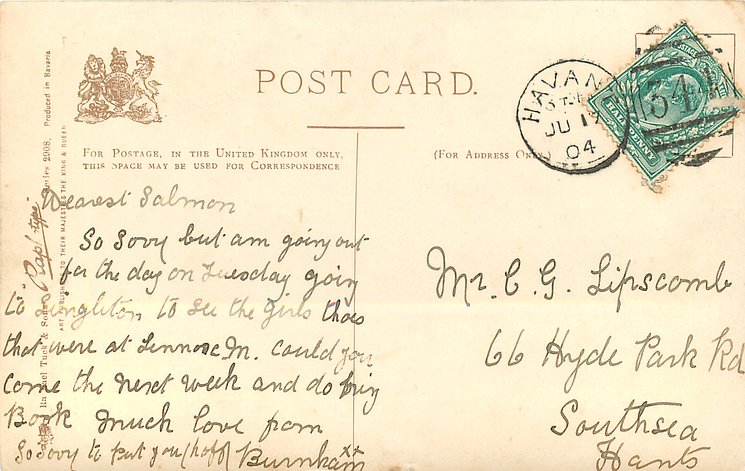 POST CARD.
FOR POSTAGE, IN THE UNITED KINGDOM ONLY,
THIS SPACE MAY BE USED FOR CORRESPONDENCE
(FOR ADDRESS ONLY
HAVANT
JU 1
04
HALFPENNY
Dearest Salmon
So Sorry but am going out
for the day on Tuesday going
to Singleton to see the girls
that were at Lennox M. Could you
come the next week and do bring
Book much love from
So Sorry to put you (hoff) Burnham xx
Mr. C. G. Lipscomb
66 Hyde Park Rd
Southsea
Hants
Raphael Tuck & Sons
Series 2908.
Produced in Bavaria
ART PUBLISHERS TO THEIR MAJESTIES THE KING & QUEEN
"Raphtype"